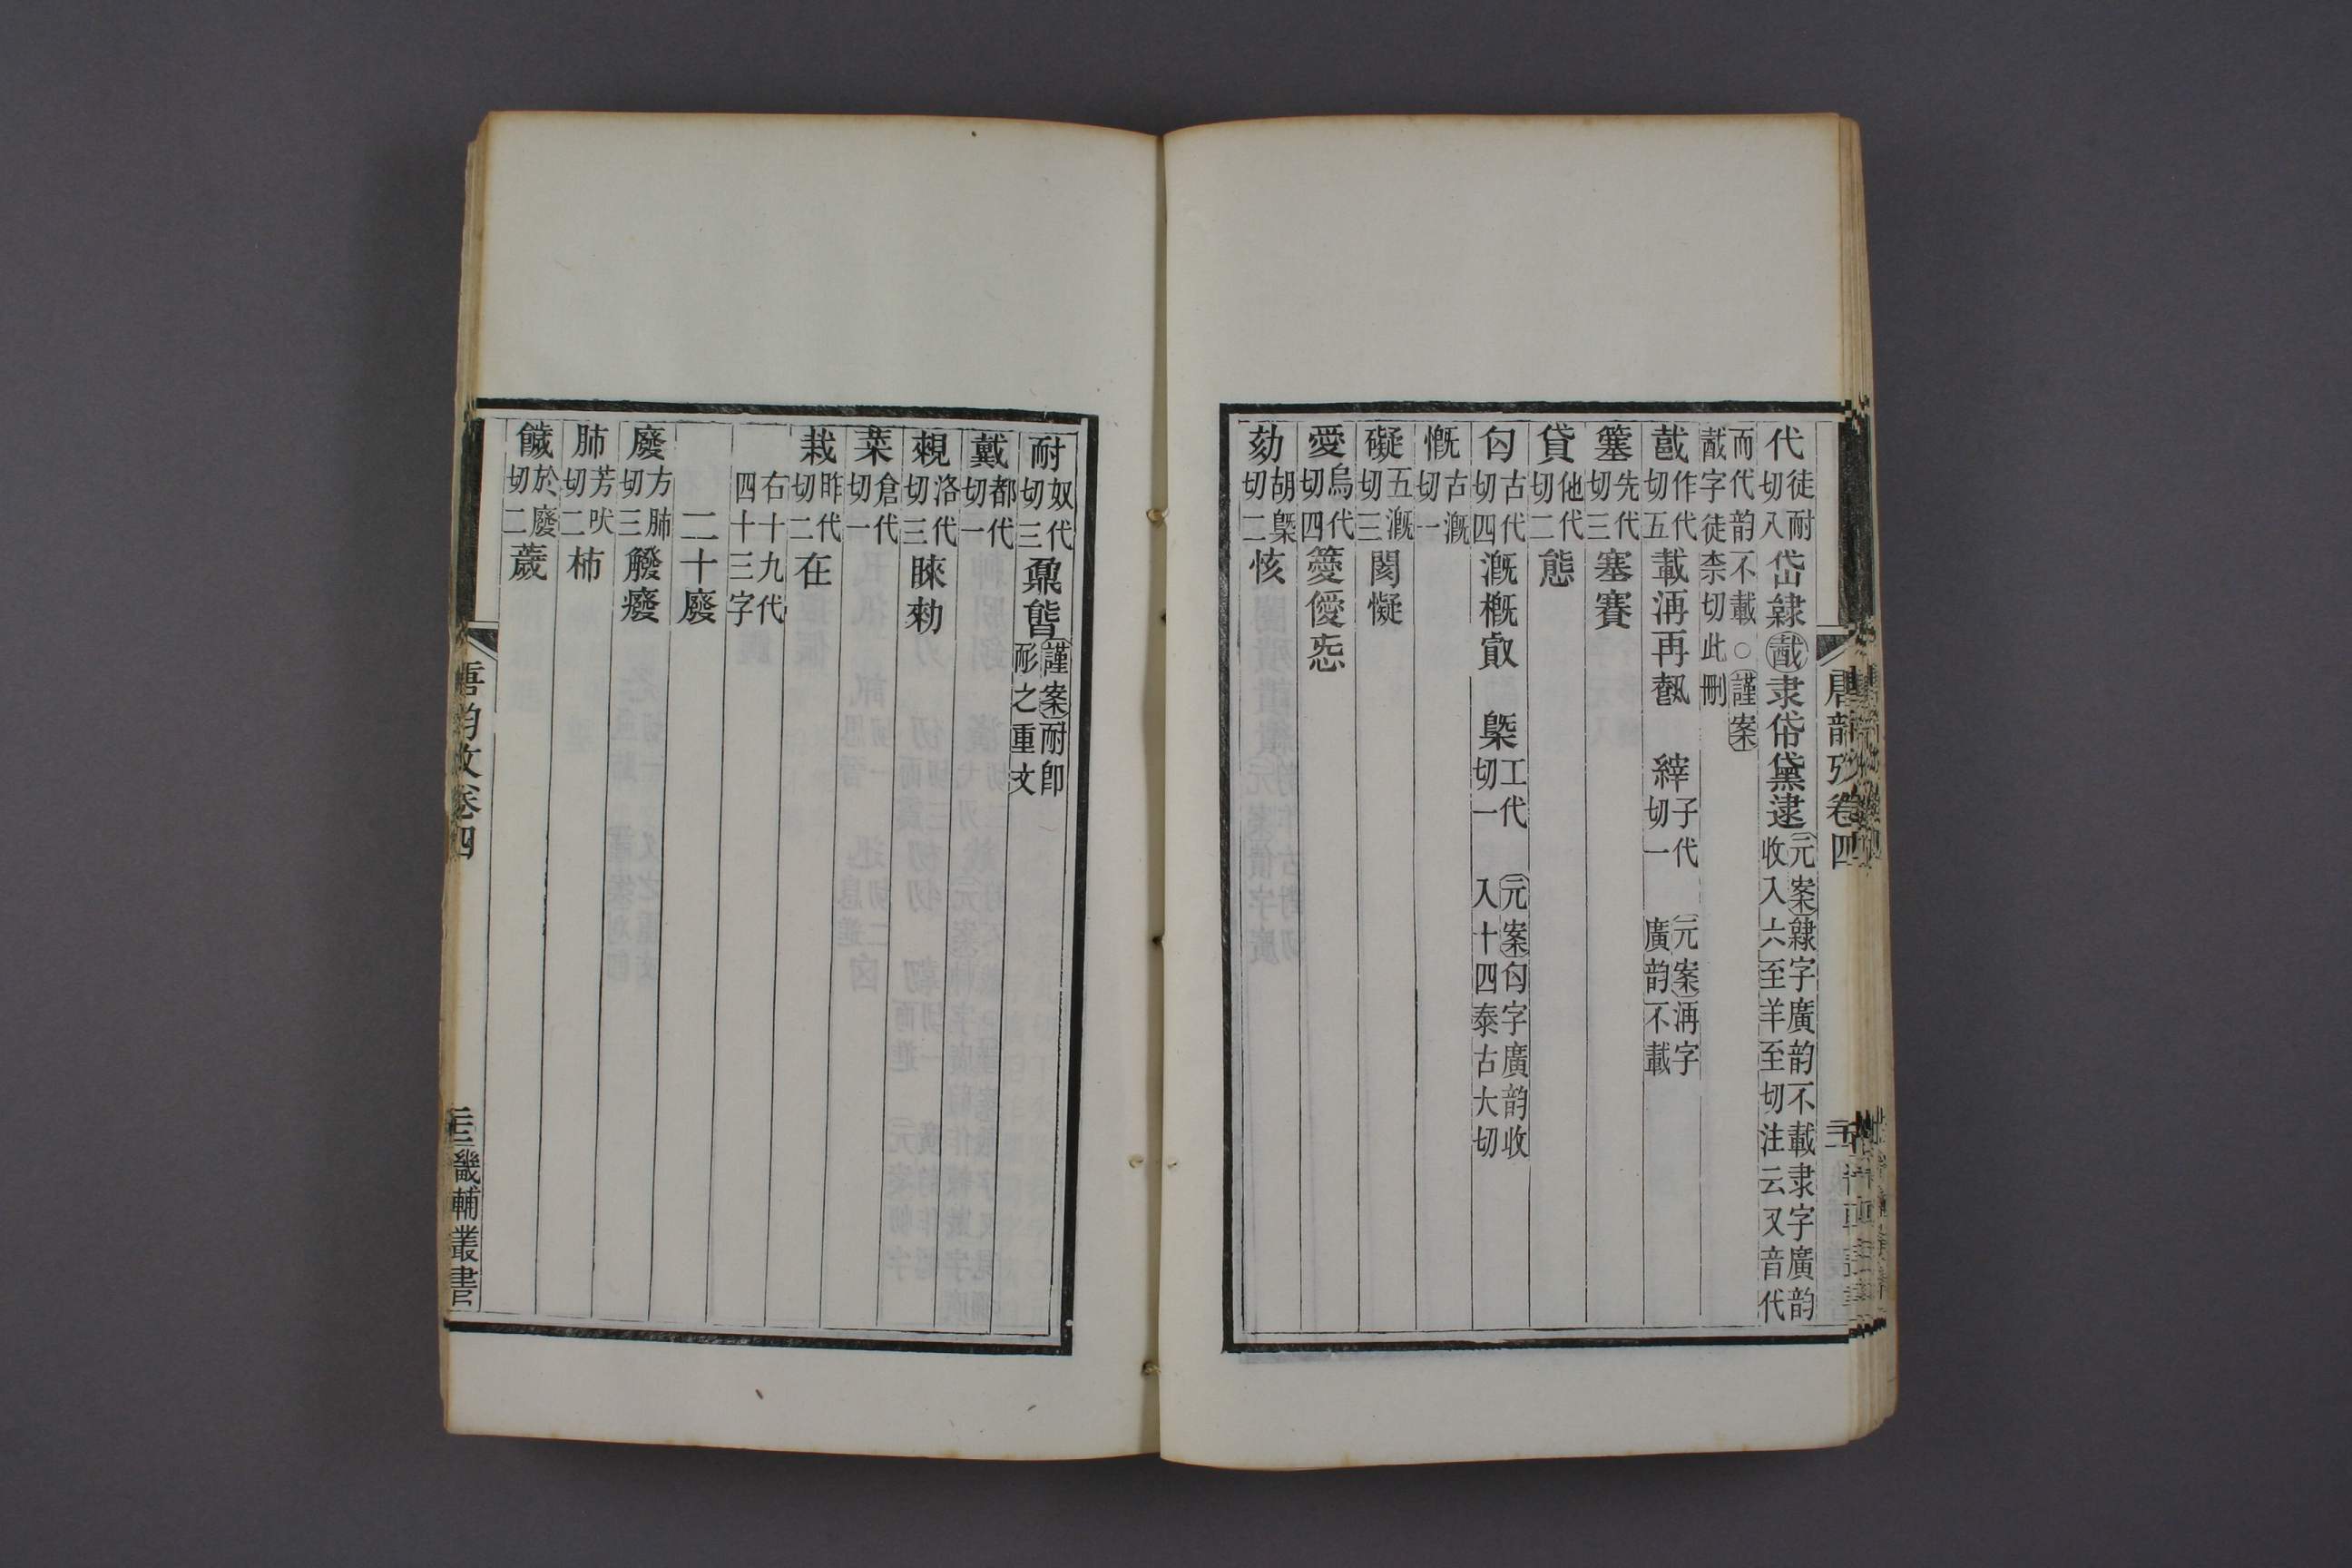 唐韻攷卷四
代徒耐切八岱隸㦵隶帒黛逮元案隸字廣韵不載隶字廣韵收入六至羊至切注云又音代
而代韵不載○謹案㦵字徒柰切此刪
載作代切五載洅再䞘縡子代切一元案洅字廣韵不載
簺先代切三塞賽
貸他代切二態
匃古代切四漑槪㱁㮣工代切一元案匃字廣韵收入十四泰古大切
慨古漑切一
礙五漑切三閡懝
愛烏代切四薆僾㤅
劾胡㮣切二㤥
耐奴代切三鼐螚謹案耐卽耏之重文
戴都代切一
覙洛代切三睞勑
菜倉代切一
栽昨代切二在
右十九代四十三字
二十廢
廢方肺切三䑔癈
肺芳吠切二杮
饖於廢切二薉
唐韵攷卷四
畿輔叢書